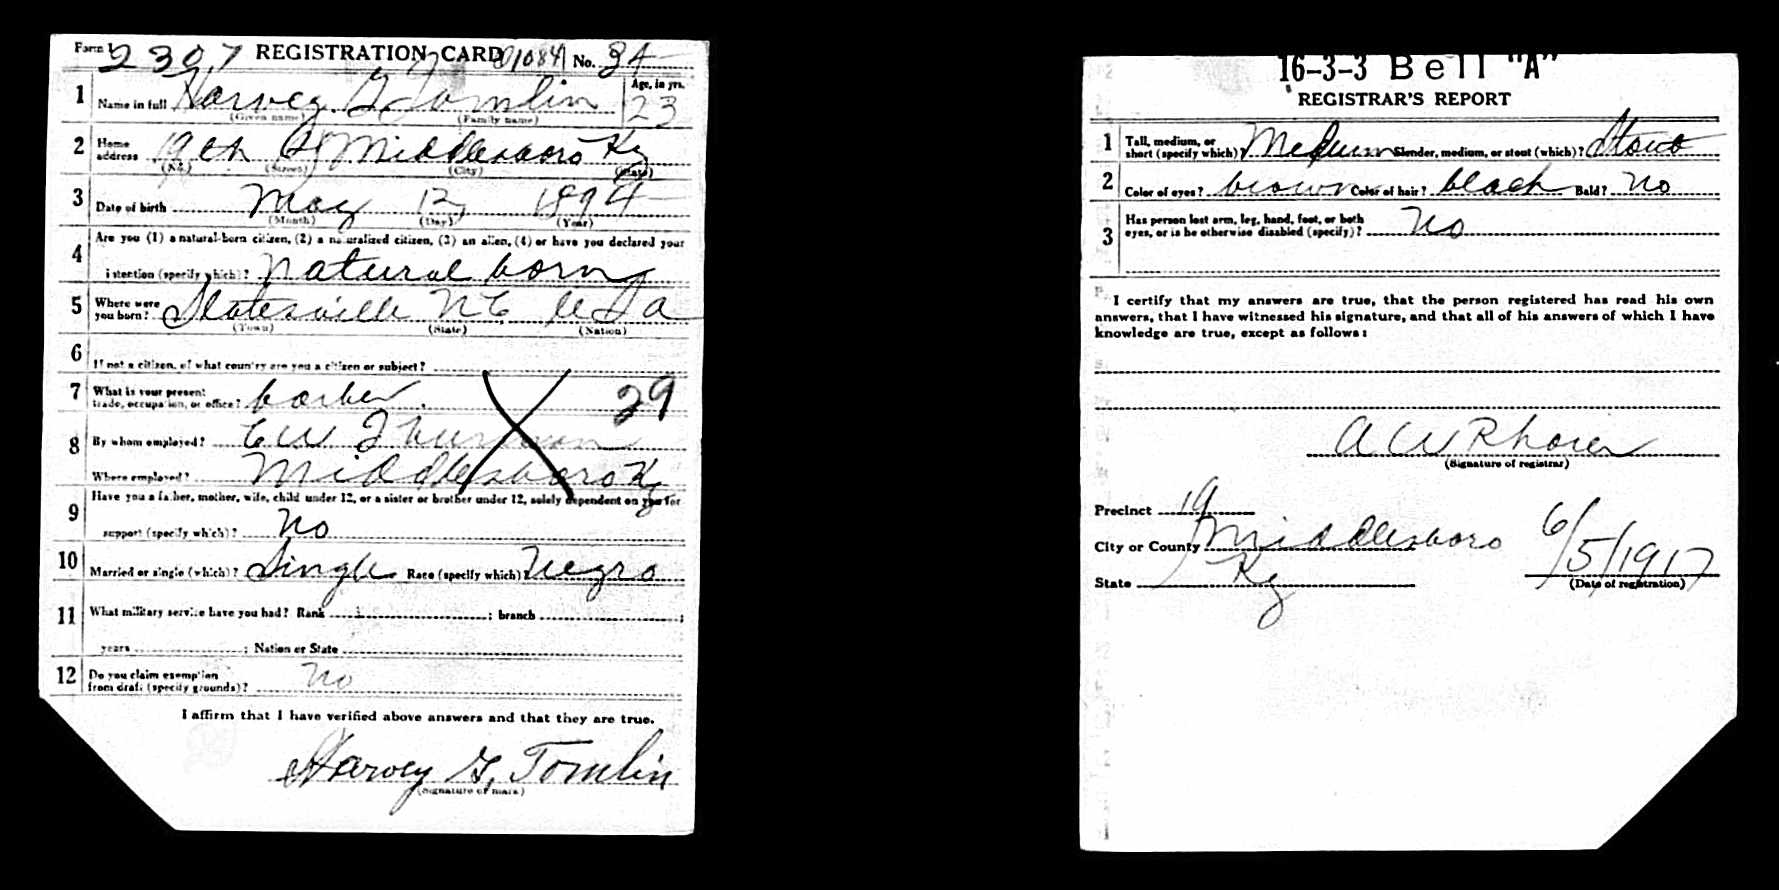 Form 1 2307 REGISTRATION CARD 1084 No. 34
1 Name in full Harvey G Tomlin Age, in yrs. 23
(Given name) (Family name)
2 Home address 19th Middlesboro Ky
(No.) (Street) (City) (State)
3 Date of birth May 1894
(Month) (Day) (Year)
4 Are you (1) a natural-born citizen, (2) a naturalized citizen, (3) an alien, (4) or have you declared your
intention (specify which)? natural born
5 Where were you born? Statesville NC USA
(Town) (State) (Nation)
6 If not a citizen, of what country are you a citizen or subject?
7 What is your present trade, occupation, or office? barber 29
8 By whom employed? C W Thurman
Where employed? Middlesboro Ky
9 Have you a father, mother, wife, child under 12, or a sister or brother under 12, solely dependent on you for
support (specify which)? No
10 Married or single (which)? Single Race (specify which)? Negro
11 What military service have you had? Rank ; branch ;
years ; Nation or State
12 Do you claim exemption from draft (specify grounds)? No
I affirm that I have verified above answers and that they are true.
Harvey G. Tomlin
(Signature or mark)
16-3-3 Bell "A"
REGISTRAR'S REPORT
1 Tall, medium, or short (specify which)? Medium Slender, medium, or stout (which)? Stout
2 Color of eyes? brown Color of hair? black Bald? No
3 Has person lost arm, leg, hand, foot, or both eyes, or is he otherwise disabled (specify)? No
I certify that my answers are true, that the person registered has read his own
answers, that I have witnessed his signature, and that all of his answers of which I have
knowledge are true, except as follows:
A W Rhorer
(Signature of registrar)
Precinct 19
City or County Middlesboro 6/5/1917
State Ky (Date of registration)